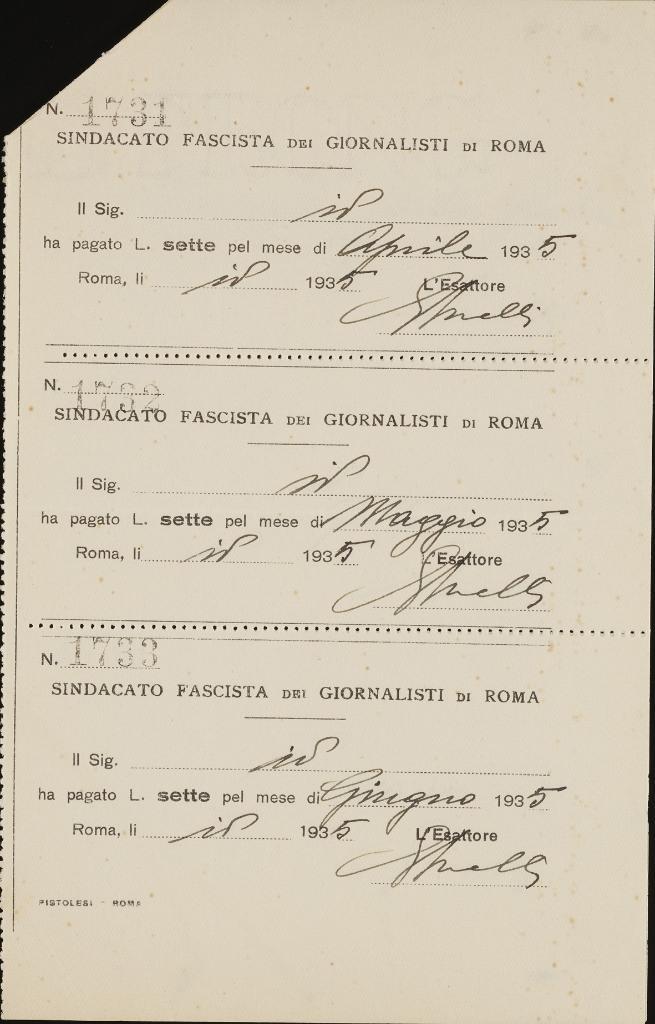 N. 1731
SINDACATO FASCISTA DEI GIORNALISTI DI ROMA
Il Sig. id
ha pagato L. sette pel mese di Aprile 1935
Roma, li id 1935 L'Esattore
N. 1732
SINDACATO FASCISTA DEI GIORNALISTI DI ROMA
Il Sig. id
ha pagato L. sette pel mese di Maggio 1935
Roma, li id 1935 L'Esattore
N. 1733
SINDACATO FASCISTA DEI GIORNALISTI DI ROMA
Il Sig. id
ha pagato L. sette pel mese di Giugno 1935
Roma, li id 1935 L'Esattore
PISTOLESI - ROMA